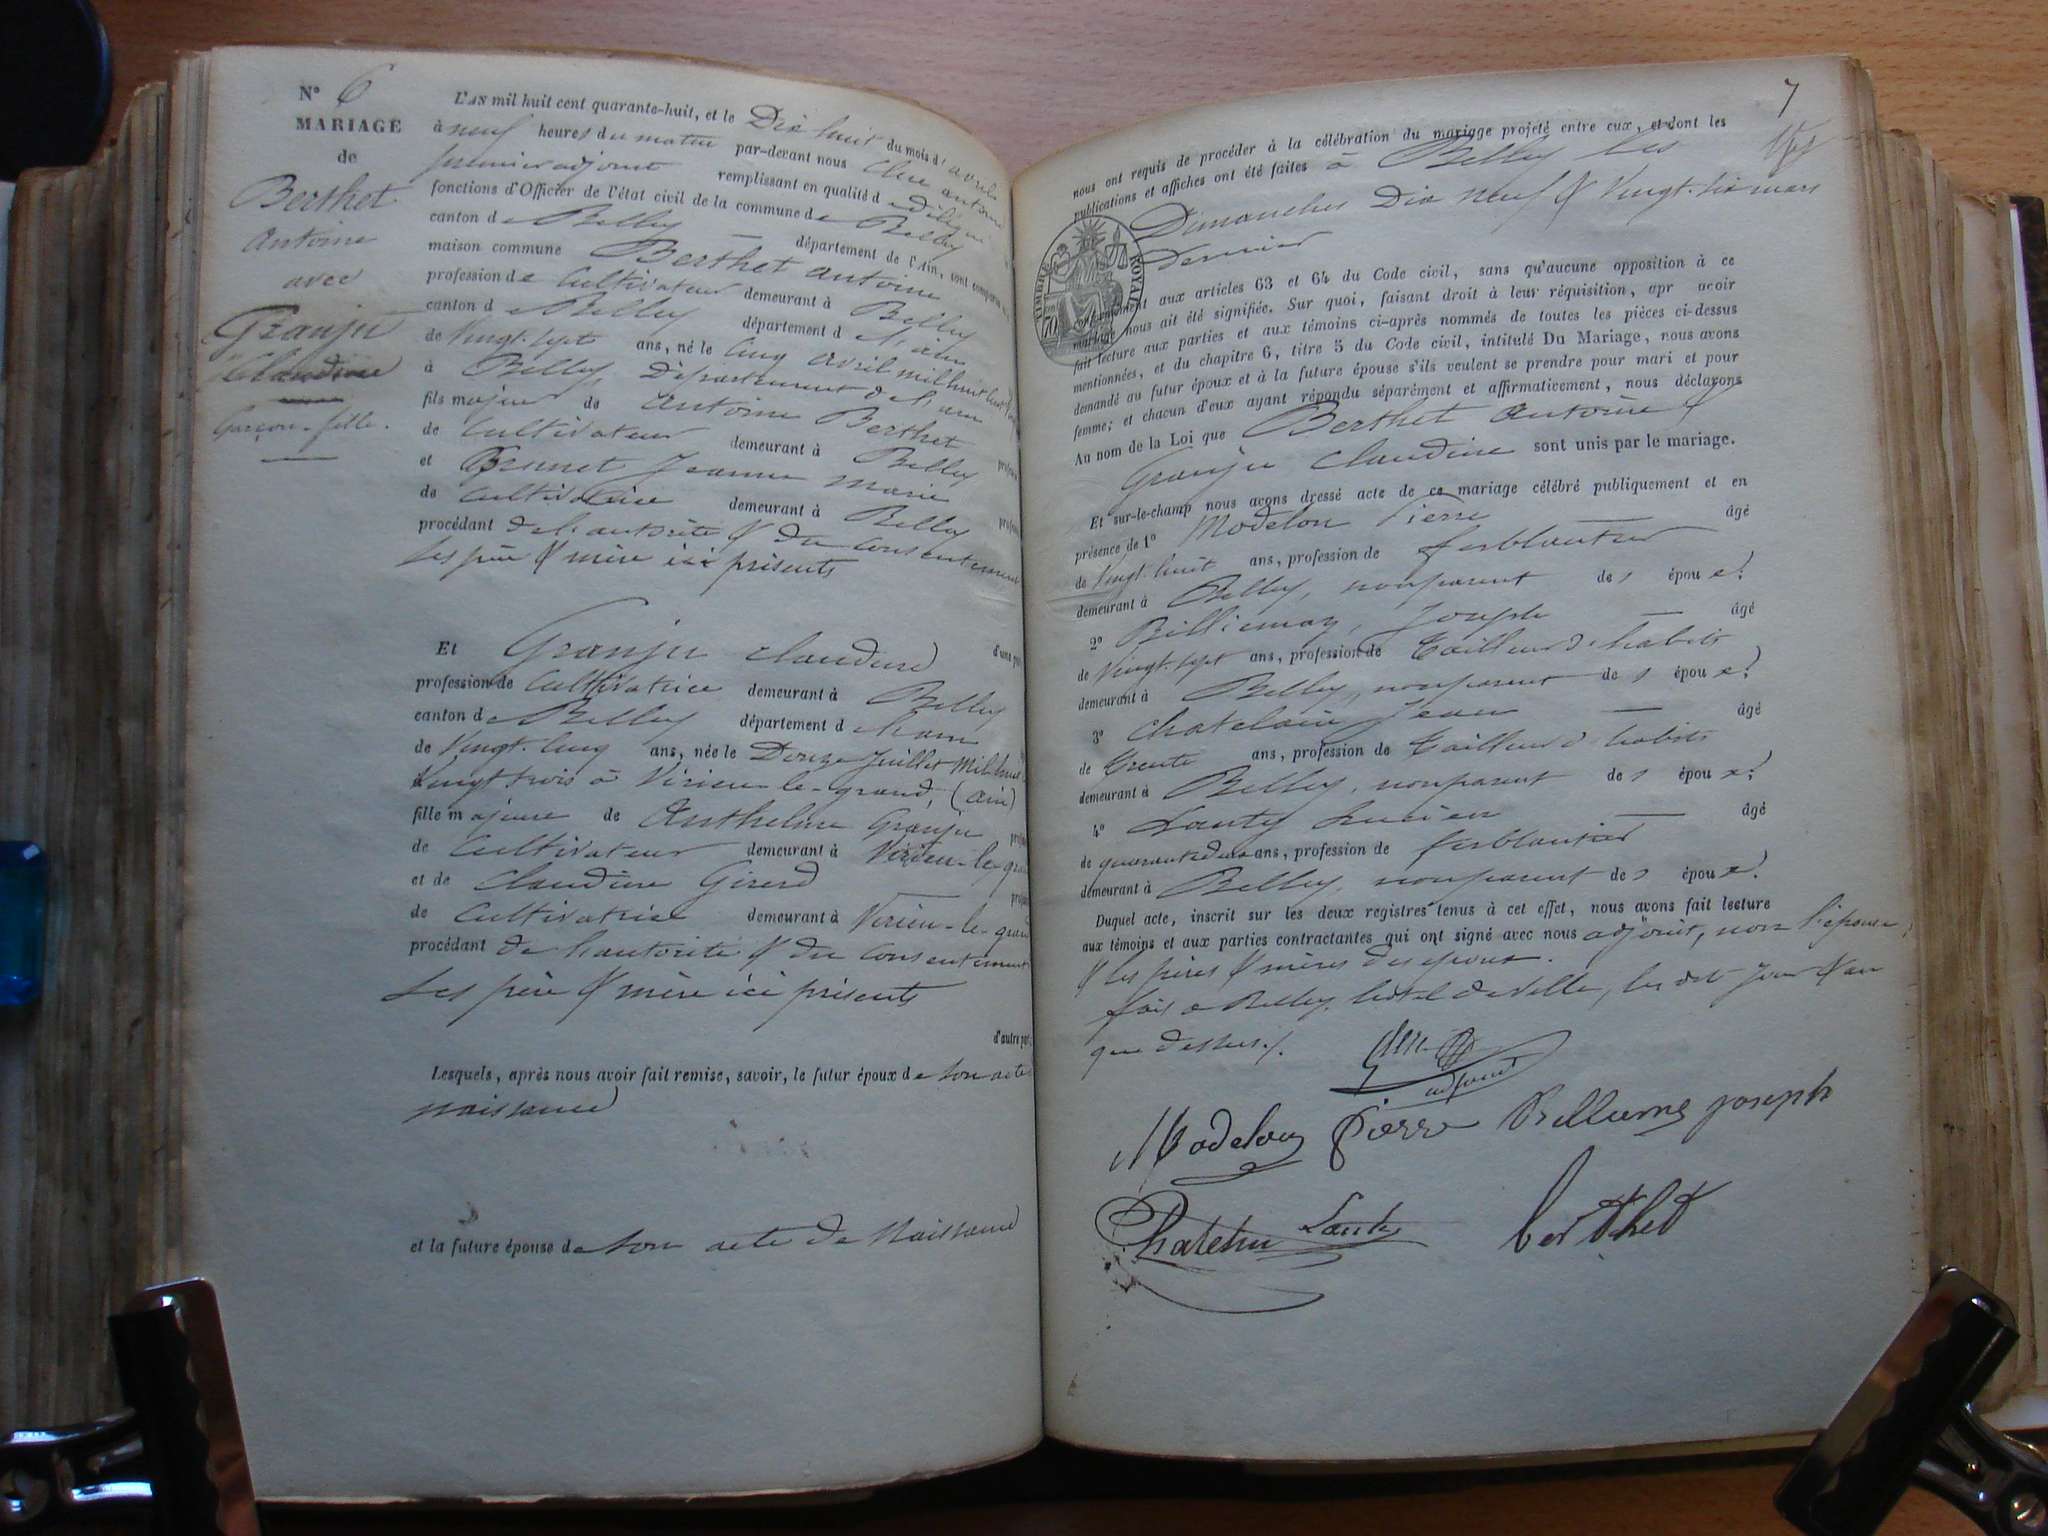 N° 6
MARIAGE
de
Berthet
Antoine
avec
Granju
Claudine
Garçon - fille.
L'AN mil huit cent quarante-huit, et le Dix huit du mois d'avril
à neuf heures du matin par-devant nous
premier adjoint remplissant en qualité de délégué
fonctions d'Officier de l'état civil de la commune de Belley
canton de Belley département de l'Ain, sont comparus
maison commune Berthet antoine
profession de Cultivateur demeurant à Belley
canton de Belley département de l'ain
de Vingt-sept ans, né le cinq avril mil huit cent
à Belley, Département de l'ain
fils majeur de Antoine Berthet
de Cultivateur demeurant à Belley
et Brunet Jeanne Marie
de Cultivatrice demeurant à Belley
procédant de l'autorité & du consentement
Ses père & mère ici présents
d'une part
Et Granju Claudine
profession de Cultivatrice demeurant à Belley
canton de Belley département de l'ain
de Vingt-cinq ans, née le Douze Juillet Mil huit
Vingt trois à Virieu-le-grand, (ain)
fille majeure de Anthelme Granju
de Cultivateur demeurant à Virieu-le-gran
et de Claudine Girerd
de Cultivatrice demeurant à Virieu-le-gran
procédant de l'autorité & du consentement
Ses père & mère ici présents
d'autre part
Lesquels, après nous avoir fait remise, savoir, le futur époux de son acte
naissance
et la future épouse de son acte de Naissance
7
nous ont requis de procéder à la célébration du mariage projeté entre eux, et dont les
publications et affiches ont été faites à Belley les
Dimanches Dix neuf & Vingt-six mars
dernier
TIMBRE ROYAL
70
conformément aux articles 63 et 64 du Code civil, sans qu'aucune opposition à ce
mariage nous ait été signifiée. Sur quoi, faisant droit à leur réquisition, apr avoir
fait lecture aux parties et aux témoins ci-après nommés de toutes les pièces ci-dessus
mentionnées, et du chapitre 6, titre 5 du Code civil, intitulé Du Mariage, nous avons
demandé au futur époux et à la future épouse s'ils veulent se prendre pour mari et pour
femme; et chacun d'eux ayant répondu séparément et affirmativement, nous déclarons
Au nom de la Loi que Berthet Antoine &
Granju Claudine sont unis par le mariage.
Et sur-le-champ nous avons dressé acte de ce mariage célébré publiquement et en
présence de 1° Modelon Pierre âgé
de Vingt-huit ans, profession de ferblantier
demeurant à Belley, non parent des époux.
2° Billiemaz, Joseph âgé
de Vingt-sept ans, profession de Tailleur d'habits
demeurant à Belley, non parent des époux.
3° Chatelain Jean âgé
de trente ans, profession de Tailleur d'habits
demeurant à Belley, non parent des époux.
4° Lanty Lucien âgé
de quarante deux ans, profession de ferblantier
demeurant à Belley, non parent des époux.
Duquel acte, inscrit sur les deux registres tenus à cet effet, nous avons fait lecture
aux témoins et aux parties contractantes qui ont signé avec nous adjoint, non l'épouse,
& les pères & mères des époux.
fait à Belley, hôtel de ville, les dit jour & an
que dessus.
adjoint
Modelon Pierre Billiemaz joseph
Chatelain Lanty berthet